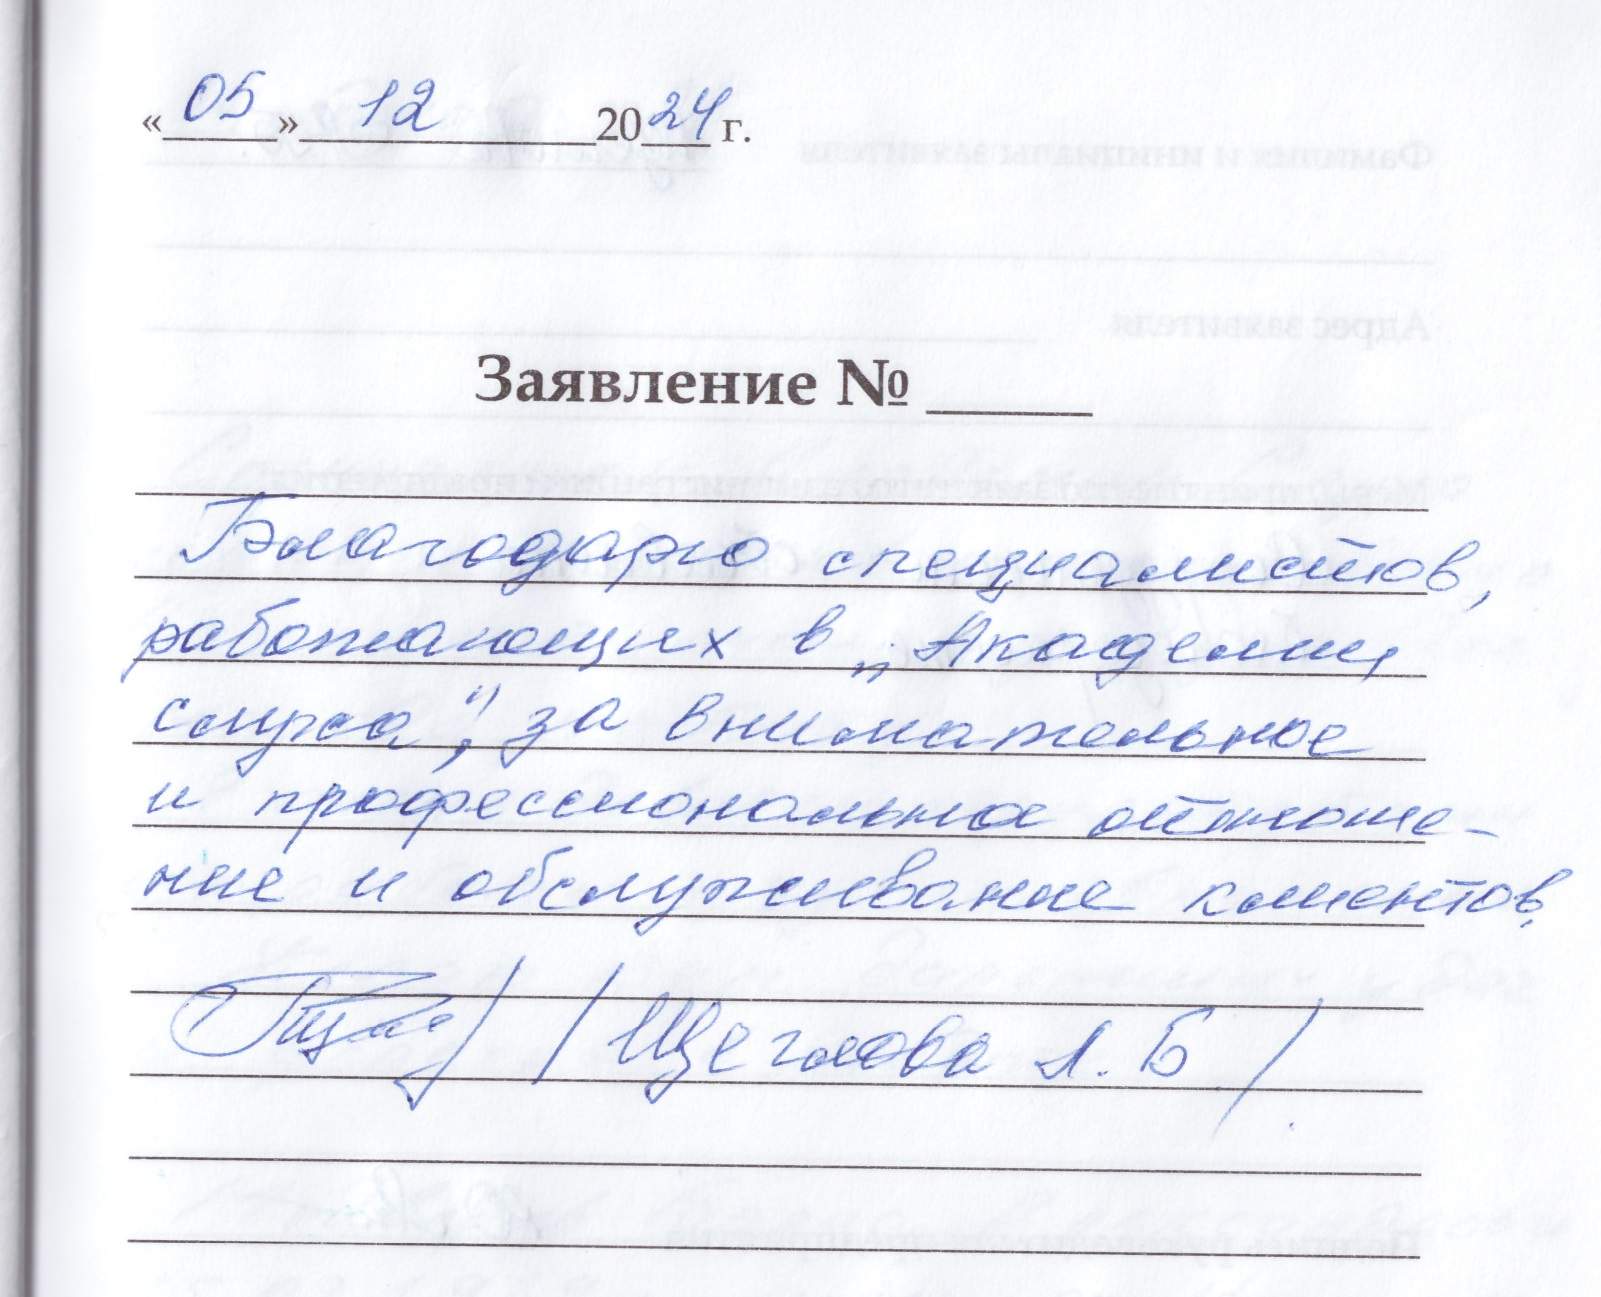 «05» 12 2024 г.
Заявление №
Благодарю специалистов,
работающих в „Академии
слуха", за внимательное
и профессиональное отноше-
ние и обслуживание клиентов.
/Щеглова Л. Б/